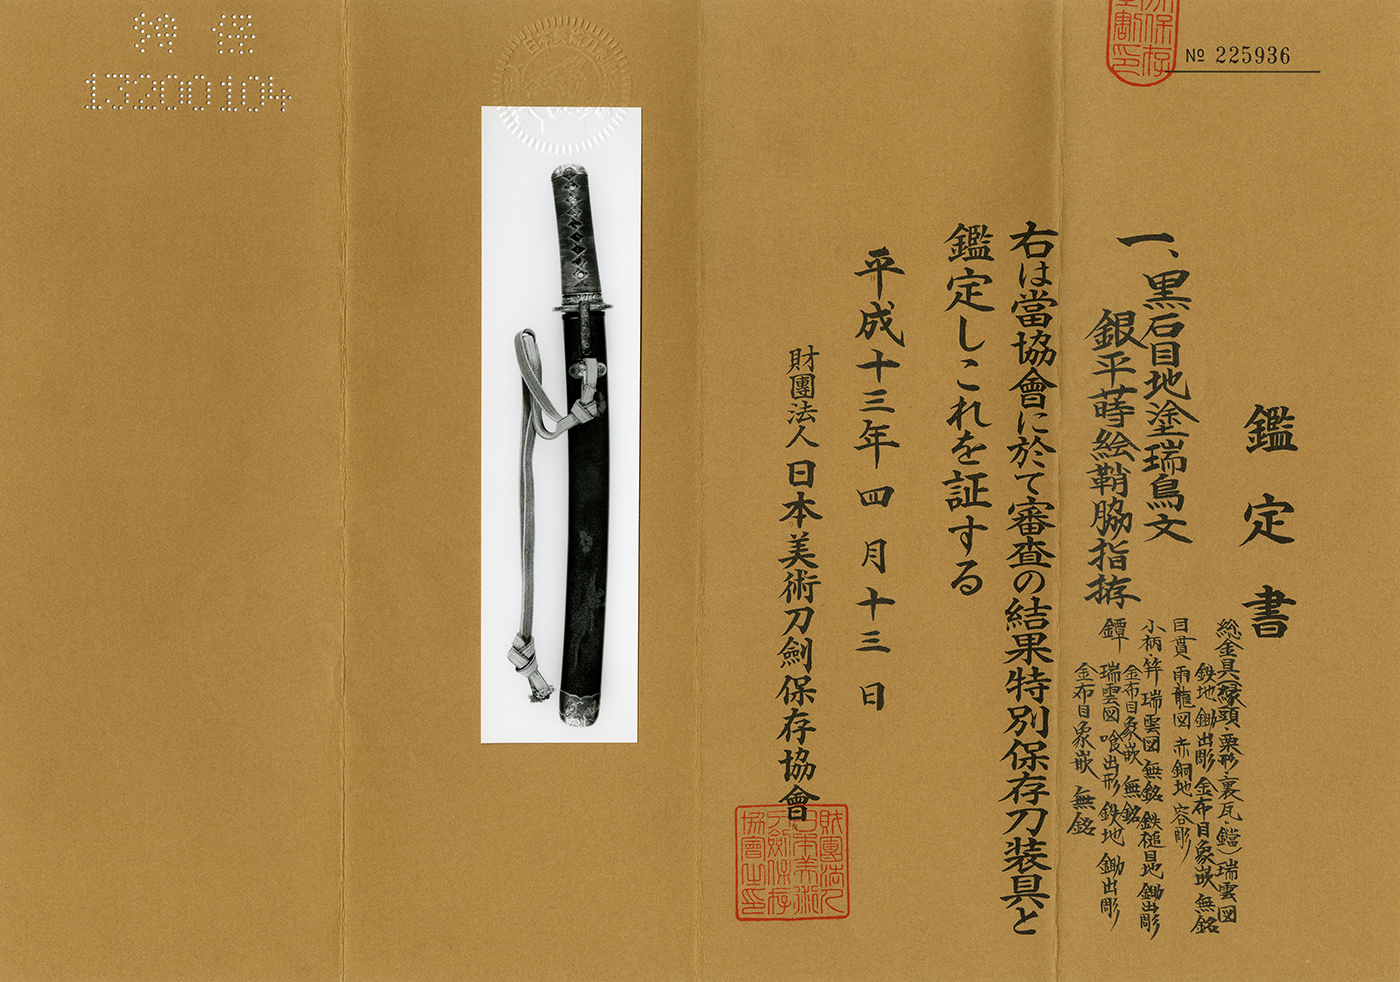 № 225936
鑑定書
一、黒石目地塗瑞鳥文
銀平蒔絵鞘脇指拵
総金具(縁頭・栗形・裏瓦・鐺)瑞雲図
鉄地 鋤出彫 金布目象嵌 無銘
目貫 雨龍図 赤銅地 容彫
小柄・笄 瑞雲図 無銘 鉄槌目地 鋤出彫
金布目象嵌 無銘
鐔 瑞雲図 喰出形 鉄地 鋤出彫
金布目象嵌 無銘
右は當協會に於て審査の結果特別保存刀装具と
鑑定しこれを証する
平成十三年四月十三日
財團法人日本美術刀劍保存協會
財團法人
日本美術
刀劍保存
協會之印
特保
13200104